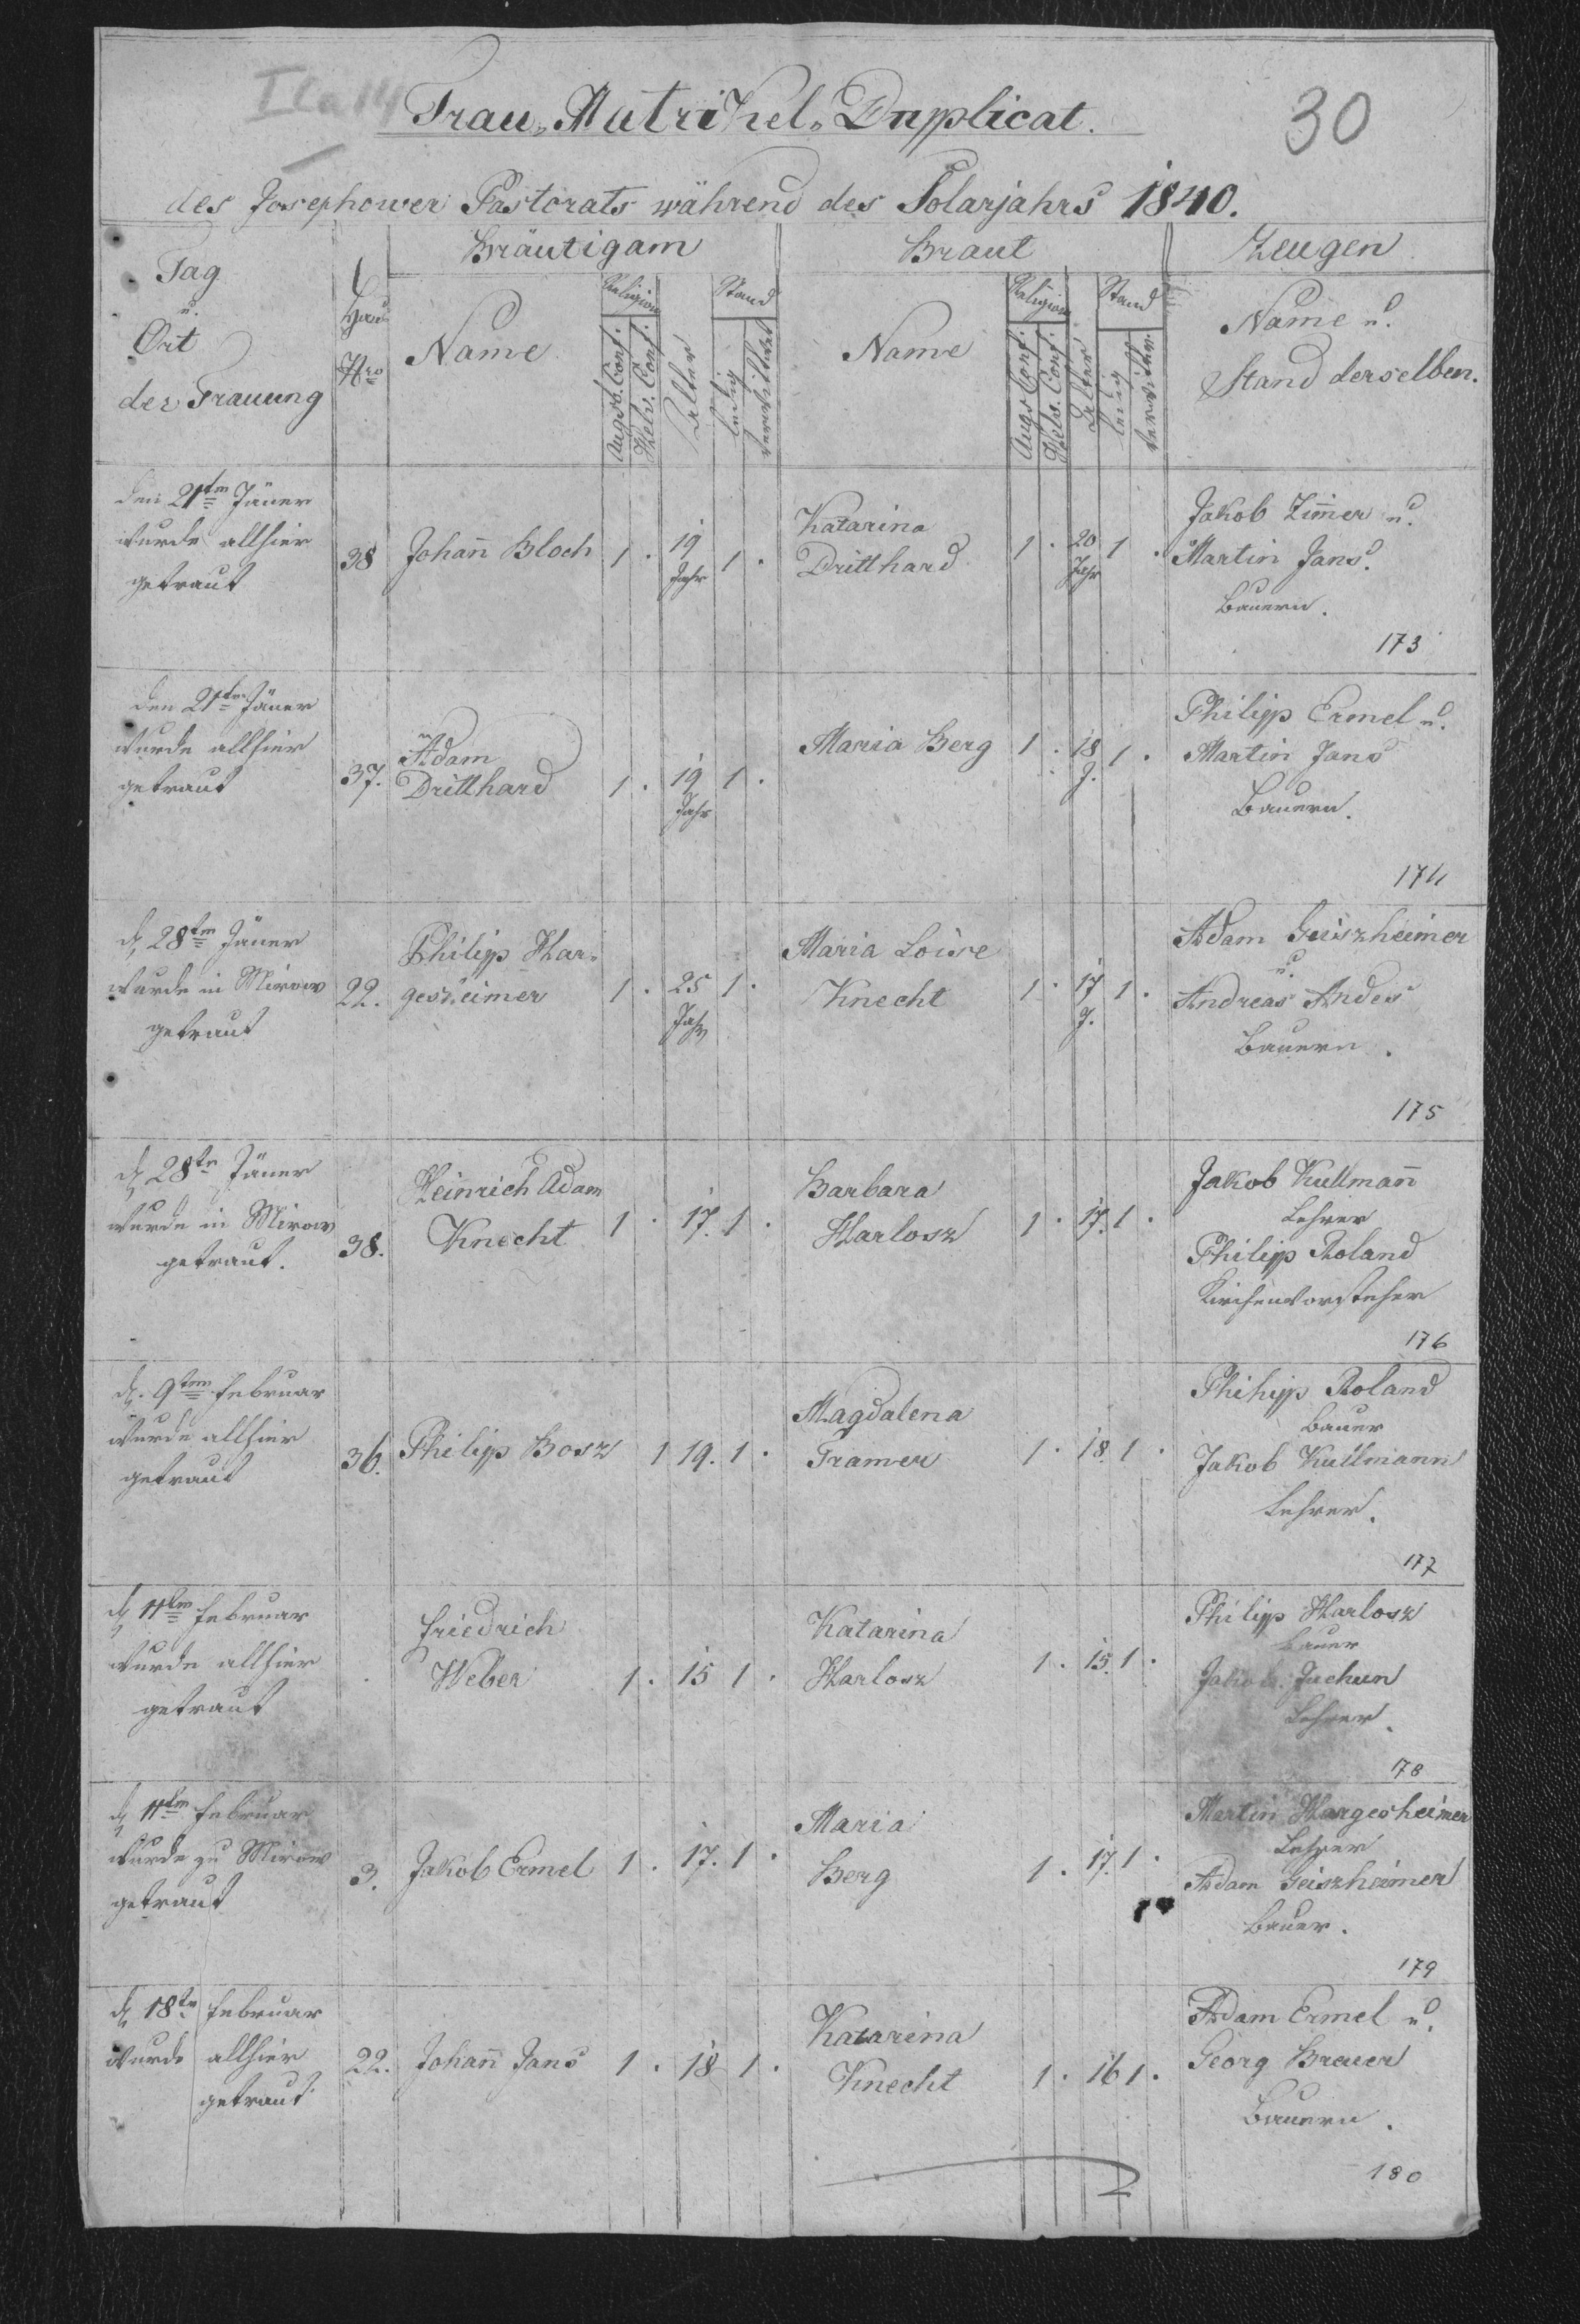 30
Trau-Matrikel-Dupplicat.
des Josephower Pastorats während des Solarjahrs 1840.
Tag
u.
Ort
der Trauung
Haus
Nro
Bräutigam
Name
Religion
Augsb. Conf.
Helv. Conf.
Alter
Stand
ledig
verwittwet
Braut
Name
Religion
Augs Conf.
Helv. Conf.
Alter
Stand
ledig
verwittw.
Zeugen
Name u.
Stand derselben.
den 21ten Jäner
wurde allhier
getraut
38
Johañ Bloch
1 . 19 1 .
Jahr
Katarina
Dritthard
1 . 20 1 .
Jahr
Jakob Zim̃er u.
Martin Jans.
Bauern.
173
den 21ten Jäner
wurde allhier
getraut
37.
Adam
Dritthard
1 . 19 1 .
Jahr
Maria Berg 1 . 18 1 .
J.
Philipp Ermel u.
Martin Jans
Bauern.
174
d 28ten Jäner
wurde in Mirow
getraut
22.
Philipp Har-
gesheimer
1 . 25 1 .
Jahr
Maria Loise
Knecht
1 . 17 1 .
J.
Adam Geiszheimer
u.
Andreas Andes
Bauern.
175
d 28ten Jäner
wurde in Mirow
getraut.
38.
Heinrich Adam
Knecht
1 . 17. 1 .
Barbara
Harlosz
1 . 17. 1 .
Jakob Kullmañ
Lehrer
Philipp Roland
Kirchenvorsteher
176
d. 9ten Februar
wurde allhier
getraut
36.
Philipp Bosz 1 19. 1 .
Magdalena
Tramer
1 . 18. 1 .
Phihipp Roland
Bauer
Jakob Kullmann
Lehrer.
177
d 11ten Februar
wurde allhier
getraut
Friedrich
Weber
1 . 15 1 .
Katarina
Harlosz
1 . 15. 1 .
Philipp Harlosz
Bauer
Jakob Juchun
Lehrer.
178
d 11ten Februar
wurde zu Mirow
getraut
3.
Jakob Ermel 1 . 17. 1 .
Maria
Berg
1 . 17. 1 .
Martin Hargesheimer
Lehrer
Adam Geiszheimer
Bauer.
179
d 18ten Februar
wurde allhier
getraut
22.
Johañ Jans 1 . 18 1 .
Katarina
Knecht
1 . 16 1 .
Adam Ermel u.
Georg Breuer
Bauern.
180